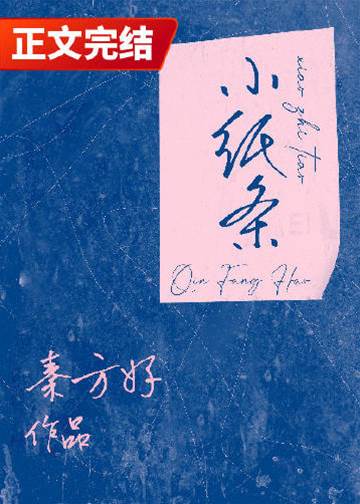 正文完结
小纸条
xiao zhi tiao
Qin Fang Hao
秦方好
作品